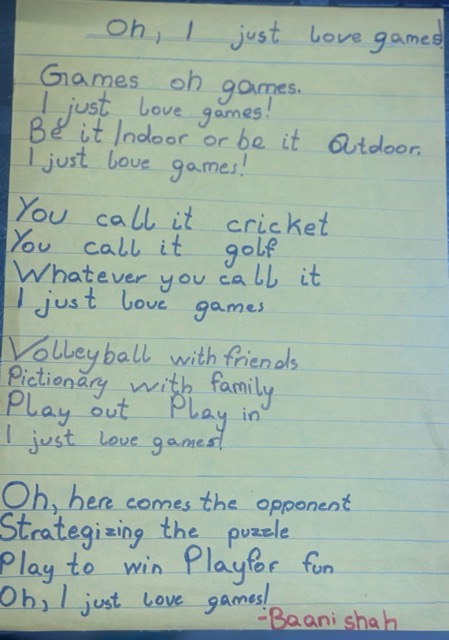 Oh, I just love games!
Games oh games.
I just love games!
Be it Indoor or be it Outdoor.
I just love games!
You call it cricket
You call it golf
Whatever you call it
I just love games
Volleyball with friends
Pictionary with family
Play out Play in
I just love games!
Oh, here comes the opponent
Strategizing the puzzle
Play to win Play for fun
Oh, I just love games!
-Baani shah